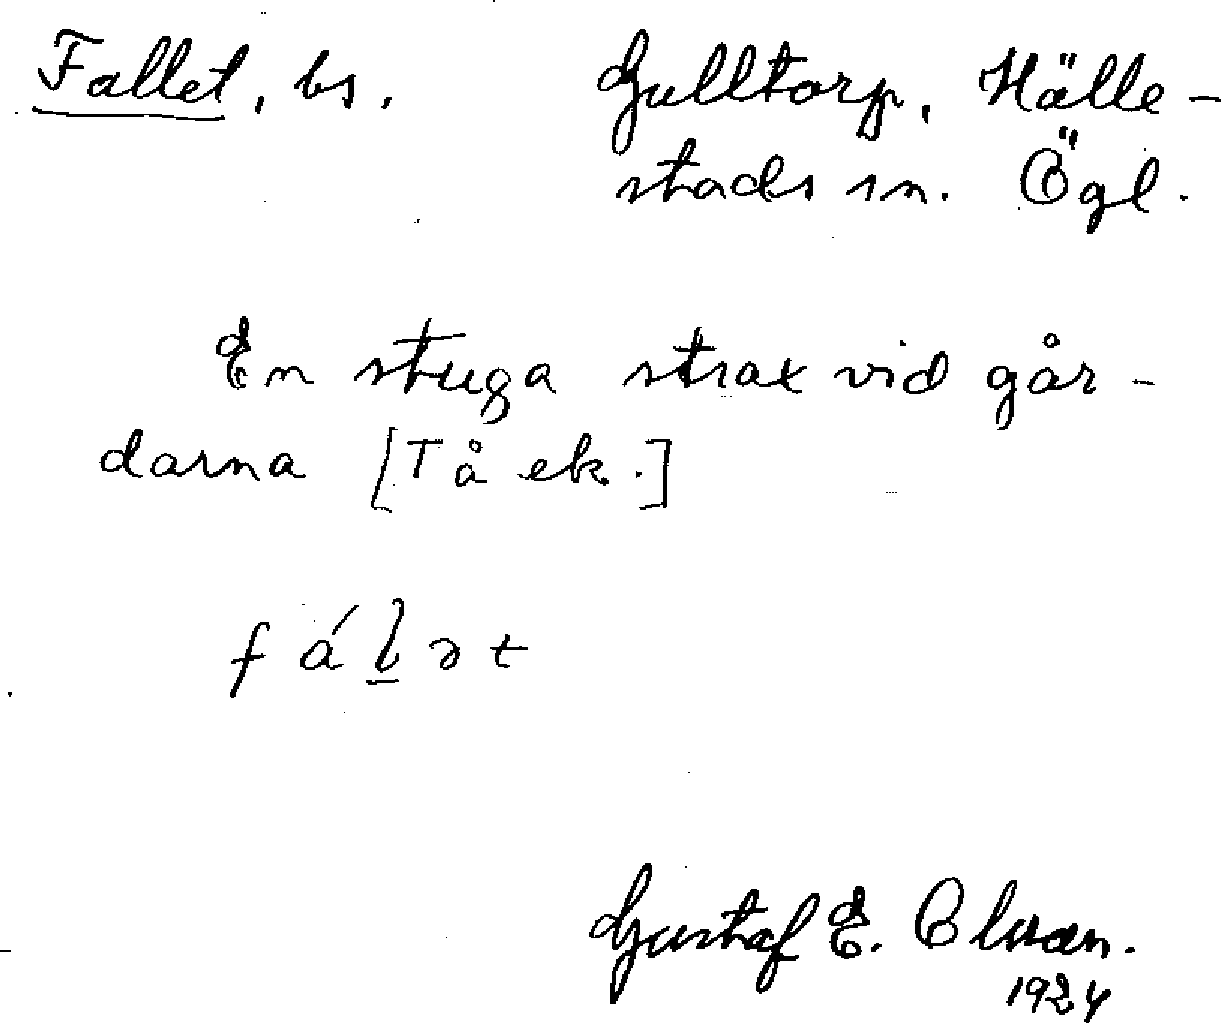 Fallet, bs. Gulltorp, Hälle-
stads sn. Ögl.
En stuga strax vid går-
darna [Tå ek.]
fál̲ət
Gustaf E. Olsson.
1924